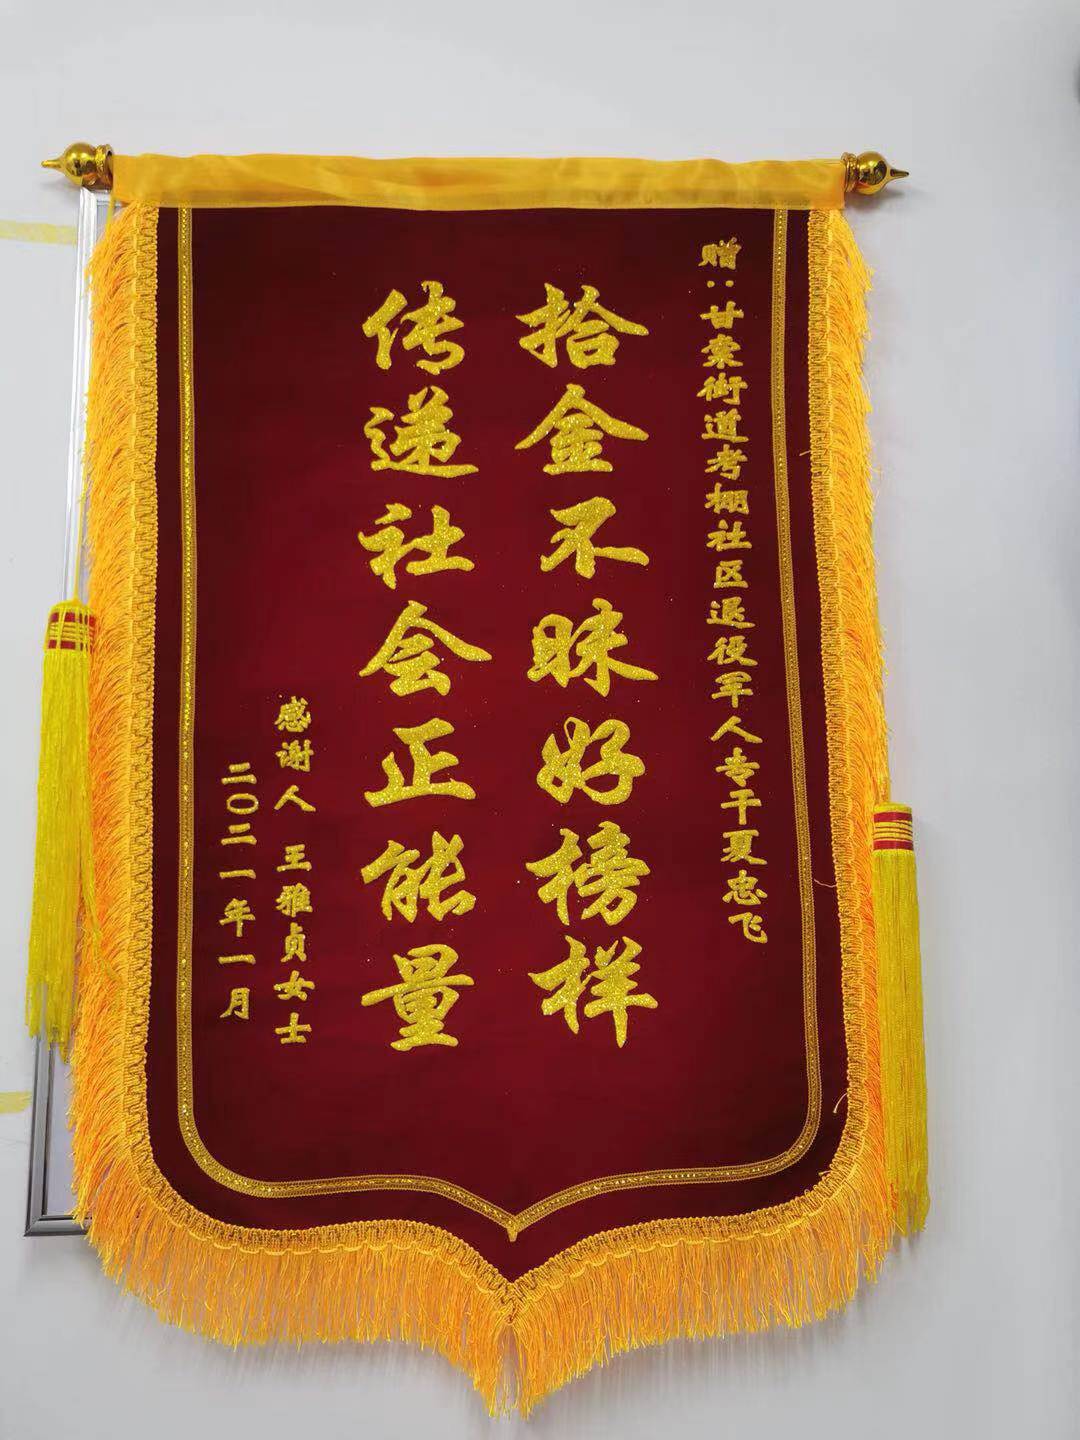 赠：甘棠街道考棚社区退役军人专干夏忠飞
拾金不昧好榜样
传递社会正能量
感谢人 王雅贞女士
二〇二一年一月